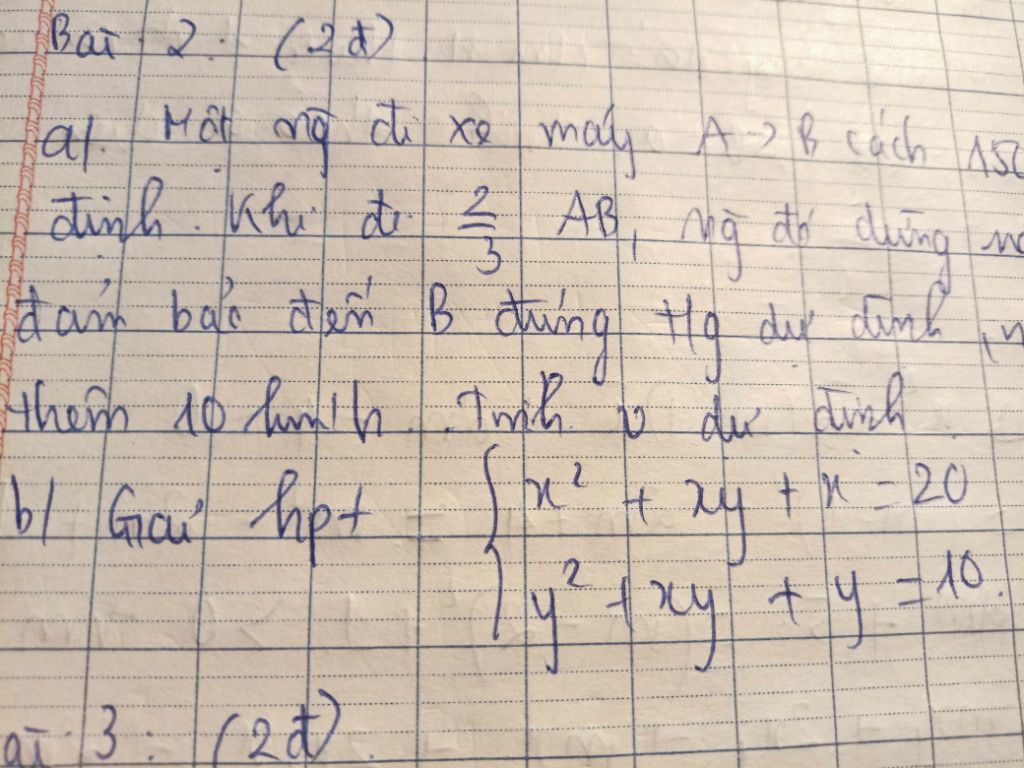 Bài 2: (2đ)
a). Một ng đi xe máy A → B cách 150
định. Khi đi 2/3 AB, ng đó dừng
đảm bảo đến B đúng tg dự định,
thêm 10 km/h. Tính v dự định.
b) Giải hpt { x² + xy + x = 20
y² + xy + y = 10.
ài 3: (2đ).